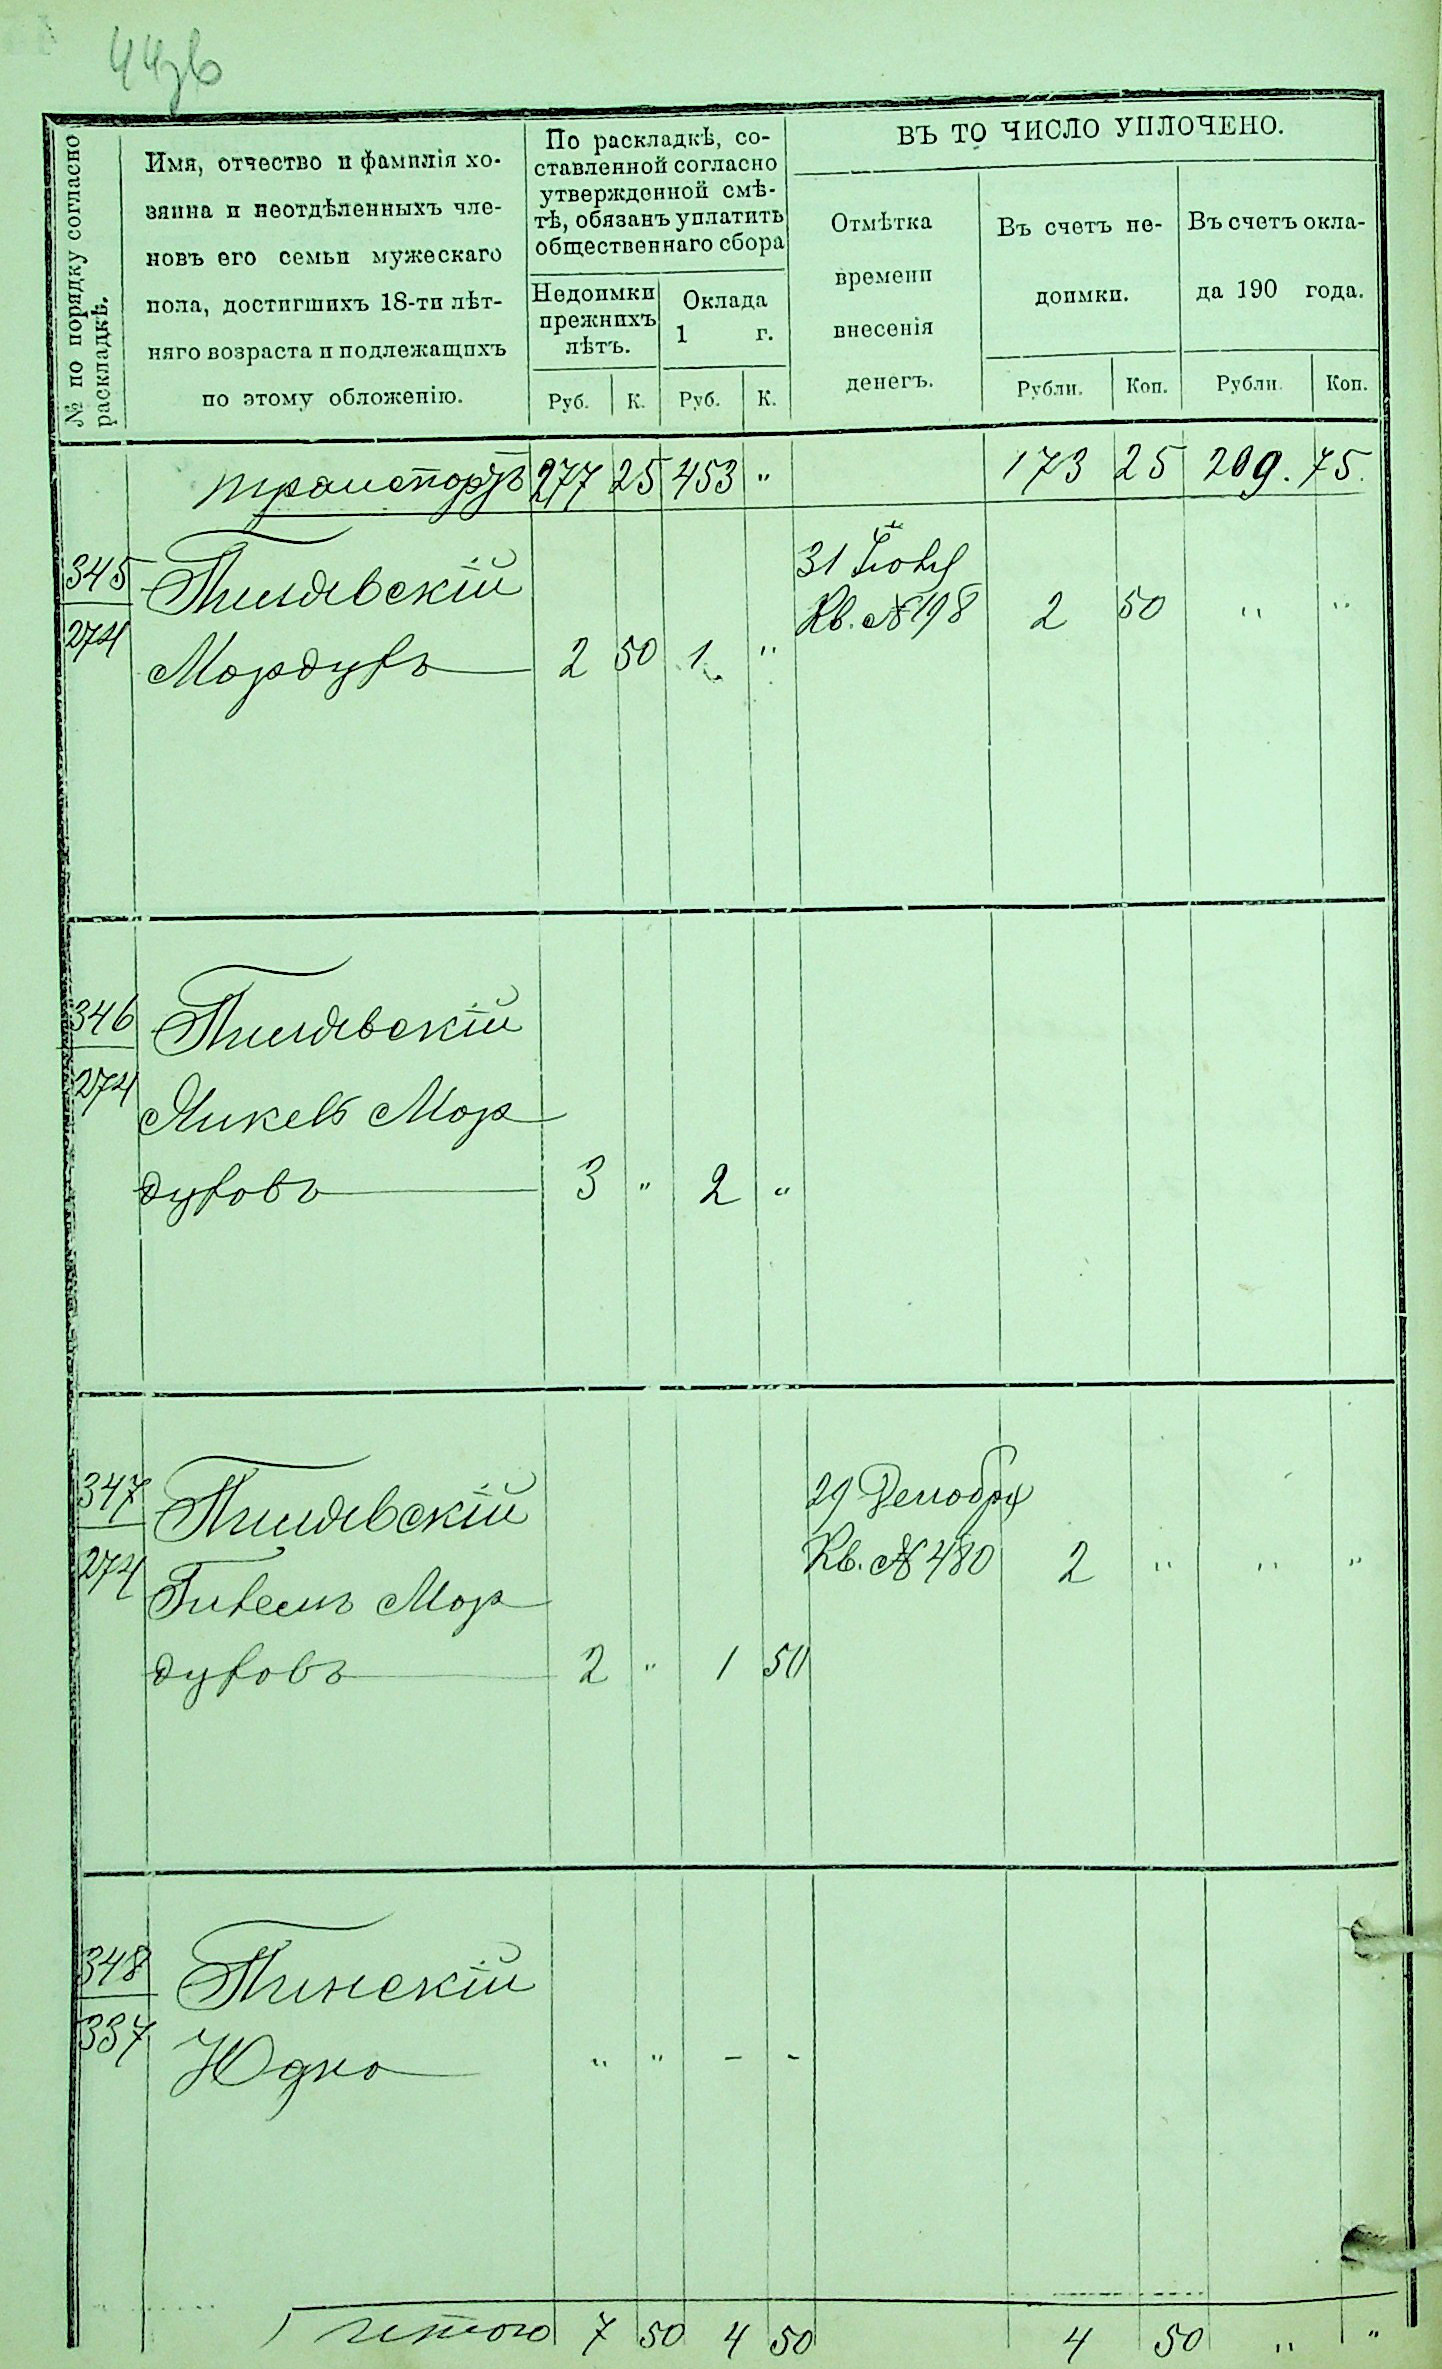 44об
№ по порядку согласно
раскладкѣ.
Имя, отчество и фамилія хо-
зяина и неотдѣленныхъ чле-
новъ его семьи мужескаго
пола, достигшихъ 18-ти лѣт-
няго возраста и подлежащихъ
по этому обложенію.
По раскладкѣ, со-
ставленной согласно
утвержденной смѣ-
тѣ, обязанъ уплатить
общественнаго сбора
Недоимки
прежнихъ
лѣтъ.
Оклада
1 г.
Руб. К. Руб. К.
ВЪ ТО ЧИСЛО УПЛОЧЕНО.
Отмѣтка
времени
внесенія
денегъ.
Въ счетъ не-
доимки.
Въ счетъ окла-
да 190 года.
Рубли. Коп. Рубли. Коп.
транспортъ 277 25 453 " 173 25 209. 75.
345
274
Пилявскій
Мордухъ 2 50 1 "
31
Кв. № 198 2 50 " "
346
274
Пилявскій
Янкель Мор
духовъ 3 " 2 "
347
274
Пилявскій
Мор
духовъ 2 " 1 50
29 Декабря
Кв. № 480 2 " " "
348
337
Пинскій
Юдко " " - -
Итого 7 50 4 50 4 50 " "